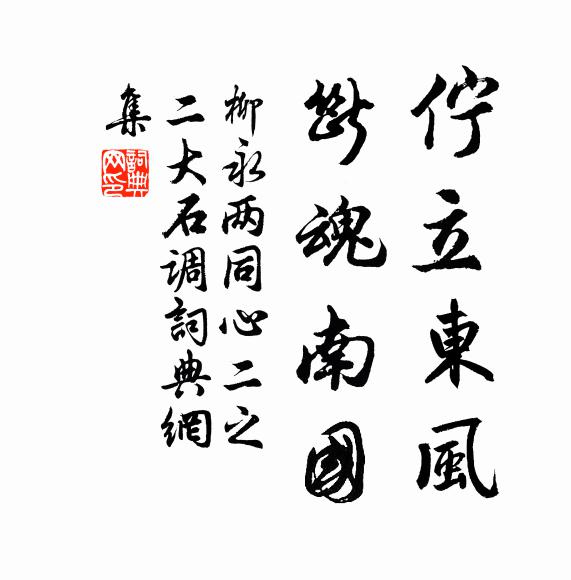 佇立東風
斷魂南國
柳永两同心二之
二大石调詞典網
集
詞典网印